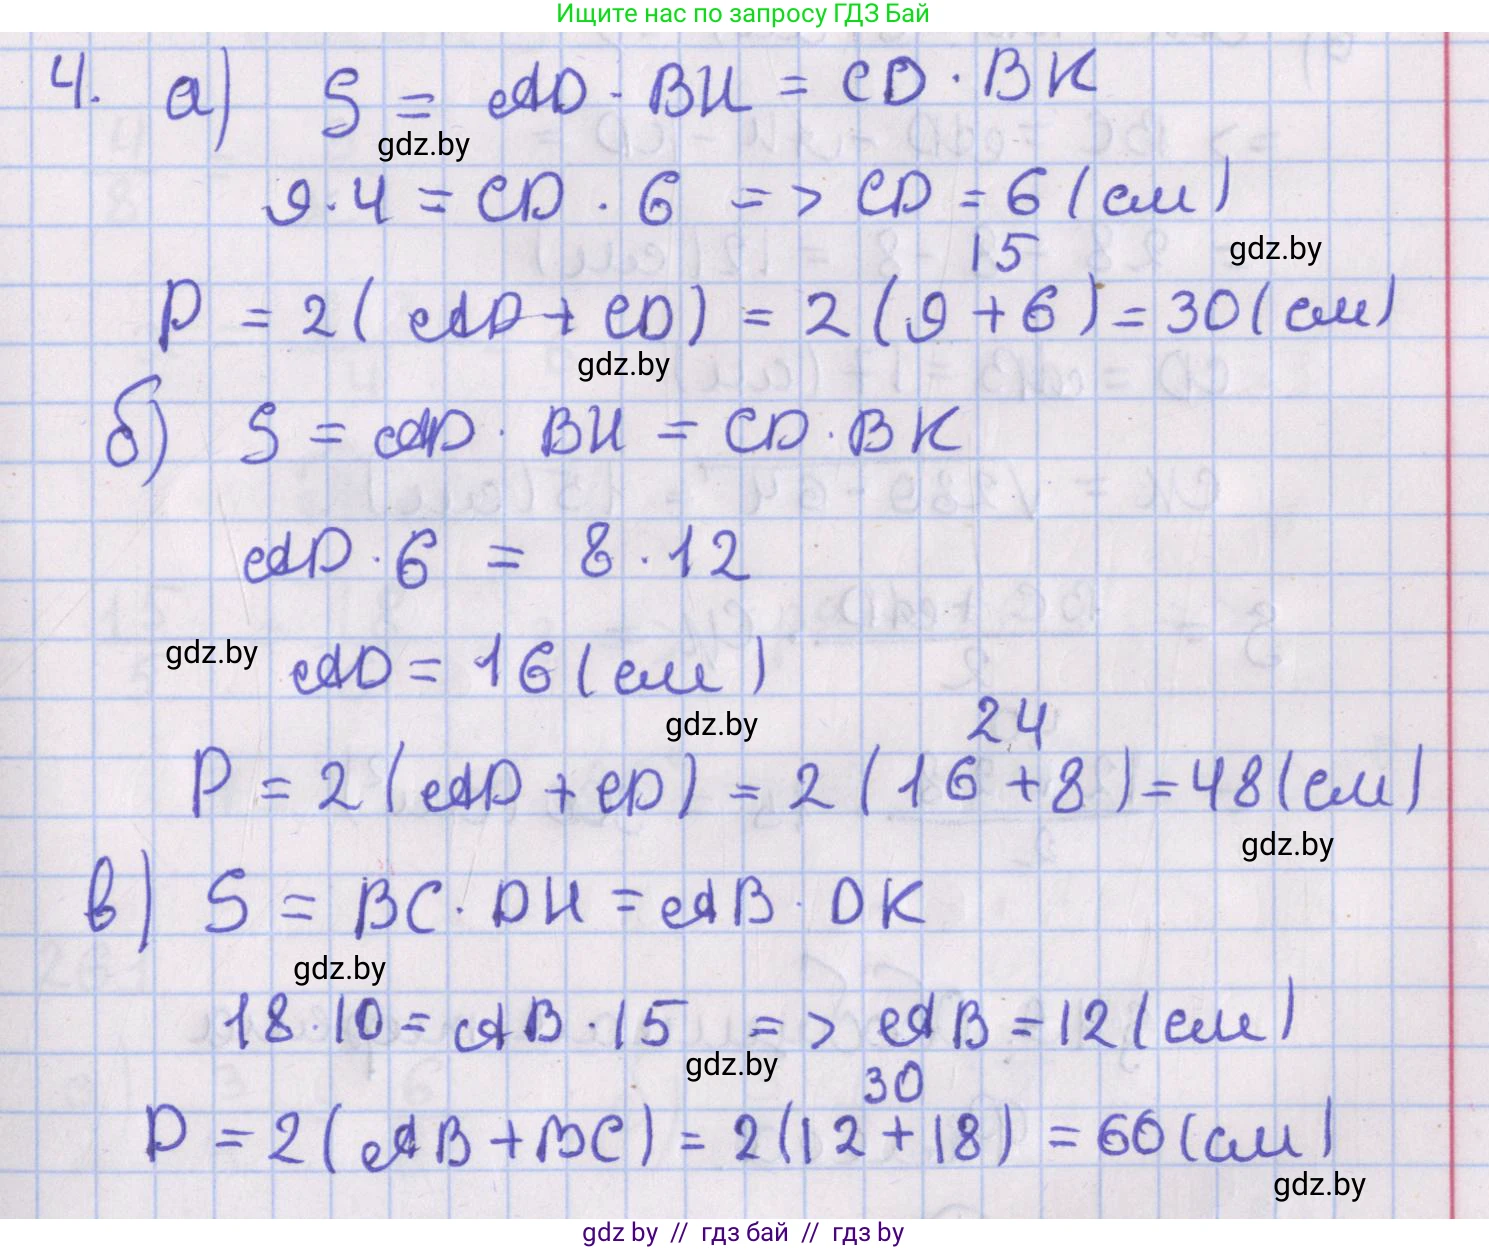 Ищите нас по запросу ГДЗ Бай
4. а) S = AD · BH = CD · BK
gdz.by
9 · 4 = CD · 6 => CD = 6 (см)
gdz.by
15
P = 2 ( AD + CD ) = 2 ( 9 + 6 ) = 30 ( см )
gdz.by
б) S = AD · BH = CD · BK
AD · 6 = 8 · 12
gdz.by
AD = 16 ( см )
gdz.by
24
P = 2 ( AD + CD ) = 2 ( 16 + 8 ) = 48 ( см )
gdz.by
в) S = BC · DH = AB · DK
gdz.by
18 · 10 = AB · 15 => AB = 12 ( см )
gdz.by
30
P = 2 ( AB + BC ) = 2 ( 12 + 18 ) = 60 ( см )
gdz.by
gdz by // гдз бай // гдз by